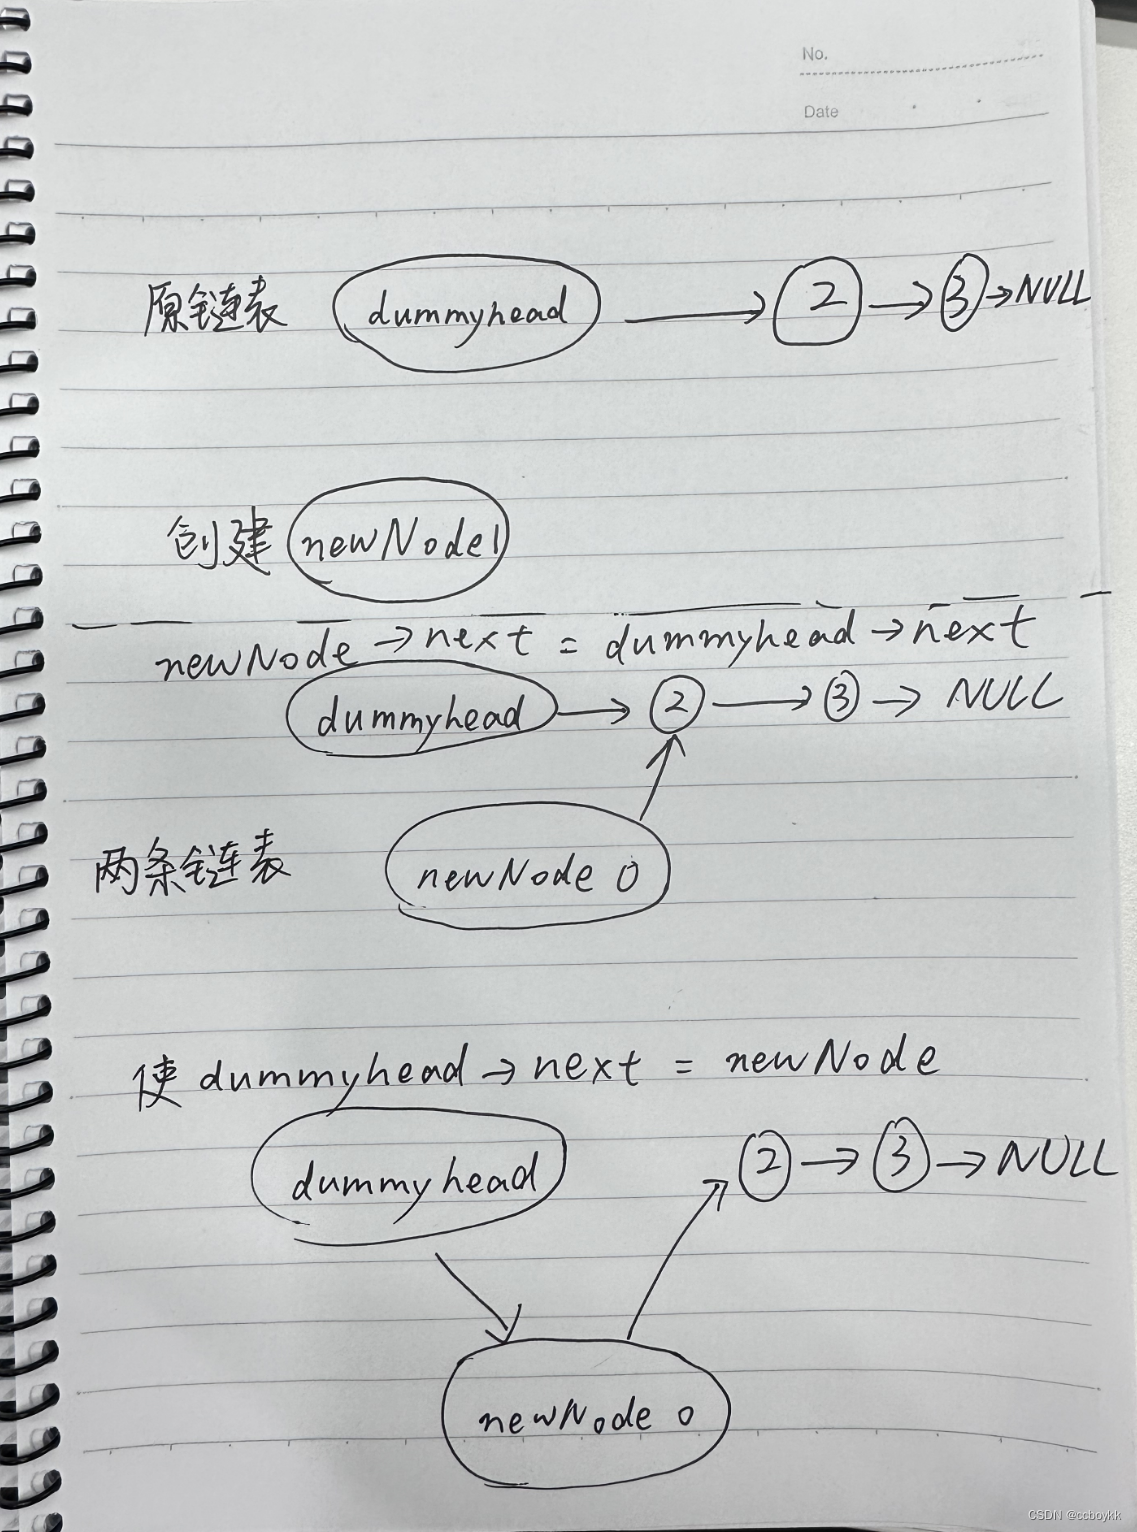 No.
Date
原链表 dummyhead → 2 → 3 → NULL
创建 newNode1
newNode → next = dummyhead → next
dummyhead → 2 → 3 → NULL
两条链表 newNode 0
使 dummyhead → next = newNode
dummyhead 2 → 3 → NULL
newNode 0
CSDN @ccboykk